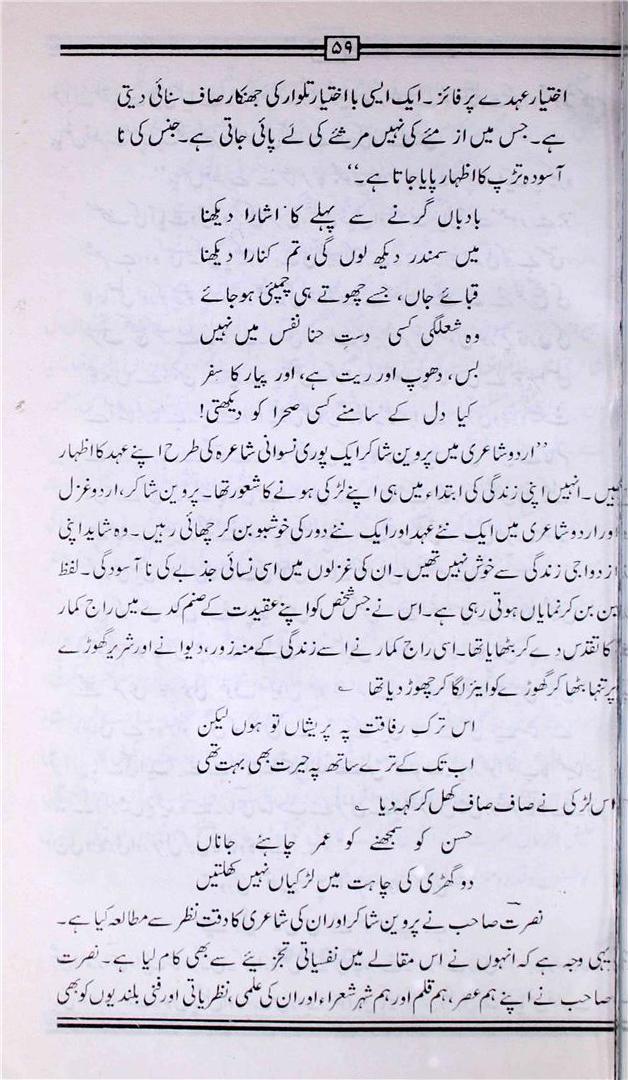 ۵۹
اختیار عہدے پر فائز۔ ایک ایسی با اختیار تلوار کی جھنکار صاف سنائی دیتی
ہے۔ جس میں از مئے کی نہیں مرثئے کی لے پائی جاتی ہے۔ جنس کی نا
آسودہ تڑپ کا اظہار پایا جاتا ہے۔‘‘
بادباں گرنے سے پہلے کا اشارا دیکھنا
میں سمندر دیکھ لوں گی، تم کنارا دیکھنا
قبائے جاں، جسے چھوتے ہی چمپئی ہو جائے
وہ شعلگی کسی دستِ حنا نفس میں نہیں
بس، دھوپ اور ریت ہے، اور پیار کا سفر
کیا دل کے سامنے کسی صحرا کو دیکھتی!
’’اردو شاعری میں پروین شاکر ایک پوری نسوانی شاعرہ کی طرح اپنے عہد کا اظہار
ہیں۔ انہیں اپنی زندگی کی ابتداء میں ہی اپنے لڑکی ہونے کا شعور تھا۔ پروین شاکر، اردو غزل
اور اردو شاعری میں ایک نئے عہد اور ایک نئے دور کی خوشبو بن کر چھائی رہیں۔ وہ شاید اپنی
ازدواجی زندگی سے خوش نہیں تھیں۔ ان کی غزلوں میں اسی نسائی جذبے کی نا آسودگی۔ لفظ
بن بن کر نمایاں ہوتی رہی ہے۔ اس نے جس شخص کو اپنے عقیدت کے صنم کدے میں راج کمار
کا تقدس دے کر بٹھایا تھا۔ اسی راج کمار نے اسے زندگی کے منہ زور، دیوانے اور شریر گھوڑے
پر تنہا بٹھا کر گھوڑے کو ایڑ لگا کر چھوڑ دیا تھا ؎
اس ترکِ رفاقت پہ پریشاں تو ہوں لیکن
اب تک کے ترے ساتھ پہ حیرت بھی بہت تھی
اس لڑکی نے صاف صاف کھل کر کہہ دیا ؎
حسن کو سمجھنے کو عمر چاہئے جاناں
دو گھڑی کی چاہت میں لڑکیاں نہیں کھلتیں
نصرت صاحب نے پروین شاکر اور ان کی شاعری کا دقت نظر سے مطالعہ کیا ہے۔
یہی وجہ ہے کہ انہوں نے اس مقالے میں نفسیاتی تجزیئے سے بھی کام لیا ہے۔ نصرت
صاحب نے اپنے ہم عصر، ہم قلم اور ہم شہر شعراء اور ان کی علمی، نظریاتی اور فنی بلندیوں کو بھی